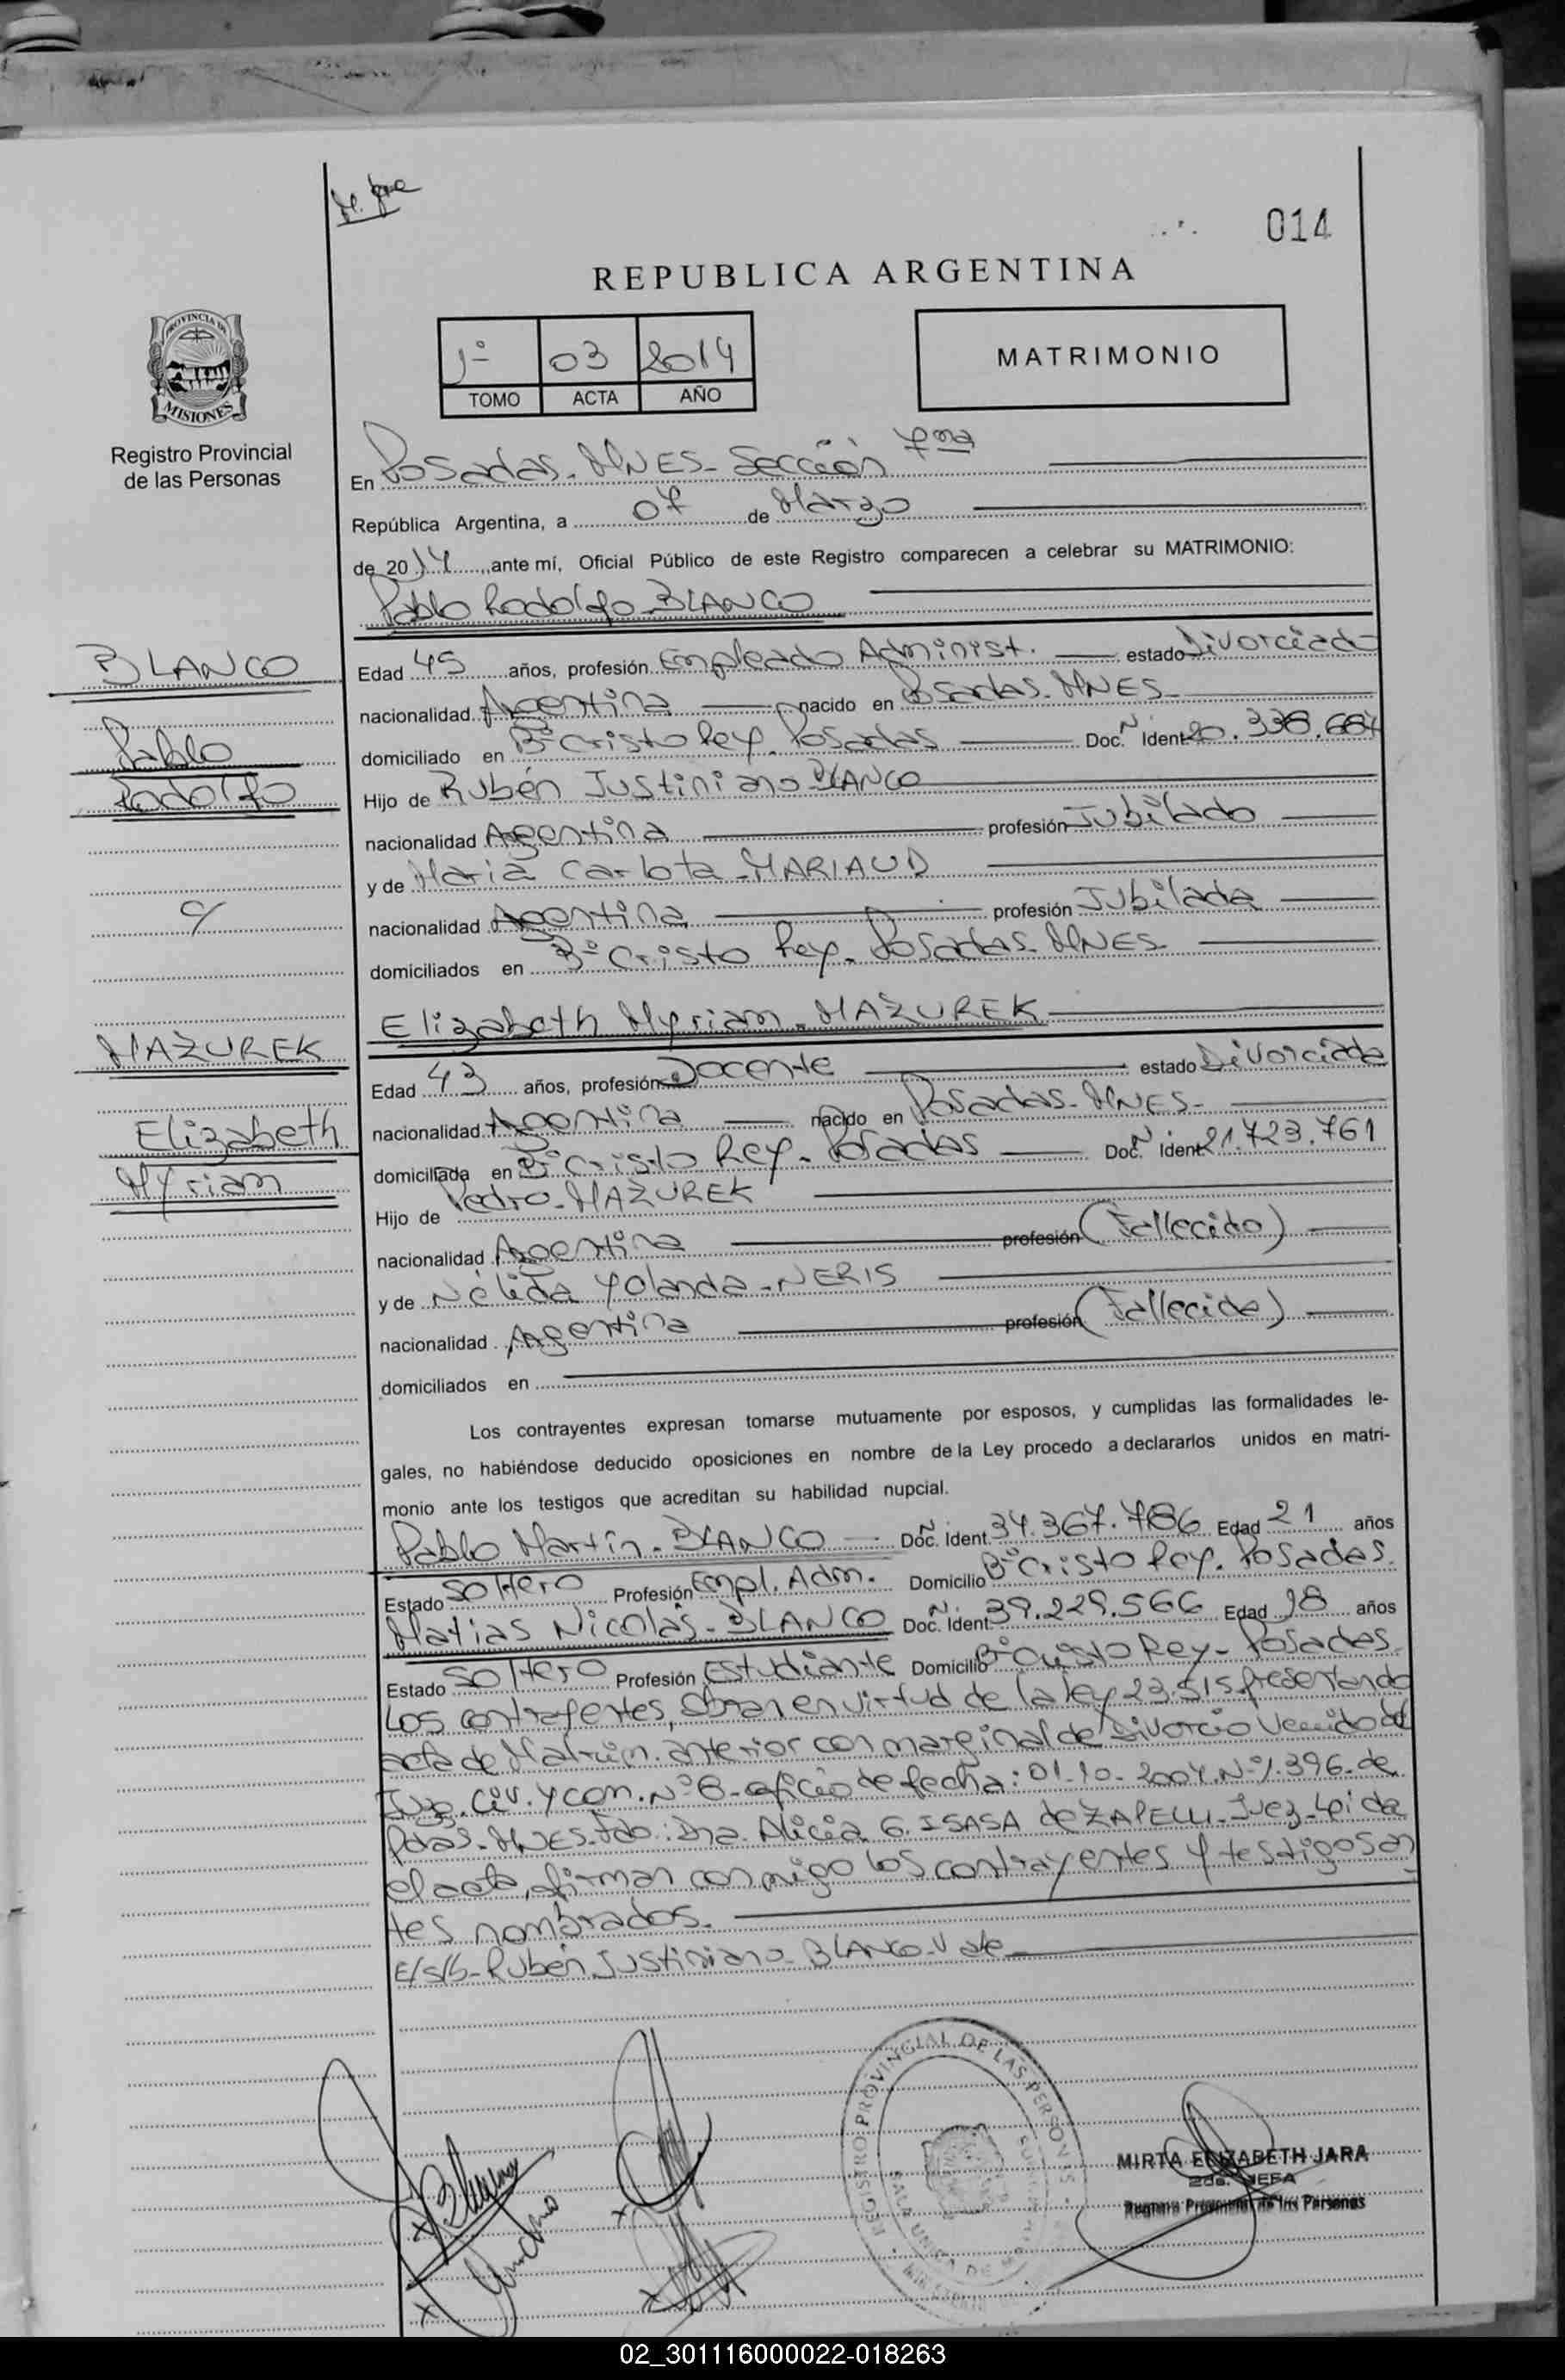 014
REPUBLICA ARGENTINA
PROVINCIA DE
MISIONES
Registro Provincial
de las Personas
1º 03 2014
TOMO ACTA AÑO
MATRIMONIO
En Posadas. MNES- Sección 7ma
República Argentina, a 07 de Marzo
de 2014, ante mí, Oficial Público de este Registro comparecen a celebrar su MATRIMONIO:
Pablo Rodolfo BLANCO
BLANCO
Pablo
Rodolfo
c/
MAZUREK
Elizabeth
Myriam
Edad 45 años, profesión Empleado Administ. estado Divorciado
nacionalidad Argentina nacido en Posadas. MNES-
domiciliado en Bº Cristo Rey. Posadas Doc. N Ident 20.338.684
Hijo de Rubén Justiniano BLANCO
nacionalidad Argentina profesión Jubilado
y de María Carlota - MARIAUD
nacionalidad Argentina profesión Jubilada
domiciliados en Bº Cristo Rey. Posadas- MNES-
Elizabeth Myriam - MAZUREK
Edad 43 años, profesión Docente estado Divorciada
nacionalidad Argentina nacido en Posadas- MNES-
domiciliada en Bº Cristo Rey. Posadas Doc. N Ident 21.723.761
Hijo de Pedro - MAZUREK
nacionalidad Argentina profesión (Fallecido)
y de Nélida Yolanda - NERIS
nacionalidad Argentina profesión (Fallecida)
domiciliados en
Los contrayentes expresan tomarse mutuamente por esposos, y cumplidas las formalidades le-
gales, no habiéndose deducido oposiciones en nombre de la Ley procedo a declararlos unidos en matri-
monio ante los testigos que acreditan su habilidad nupcial.
Pablo Martín - BLANCO Doc. N Ident. 34.367.786 Edad 21 años
Estado Soltero Profesión Empl. Adm. Domicilio Bº Cristo Rey. Posadas.
Matias Nicolás - BLANCO Doc. N Ident. 39.229.566 Edad 18 años
Estado Soltero Profesión Estudiante Domicilio Bº Cristo Rey - Posadas.
Los contrayentes, obran en virtud de la ley 23.515 presentando
acta de Matrim. anterior con marginal de Divorcio
Juzg. Civ. y Com. Nº 6 - oficio de fecha: 01-10-2004. Nº 1.396- de
Pdas- MNES- Fdo: Dra. Alicia G. ISASA de ZAPELLI - Juez - Leida
el acta, firman conmigo los contrayentes y testigos an
tes nombrados.
E/s/b- Rubén Justiniano - BLANCO - Vale
REGISTRO PROVINCIAL DE LAS PERSONAS
MIRTA ELIZABETH JARA
2da. JEFA
Registro Provincial de las Personas
02_301116000022-018263